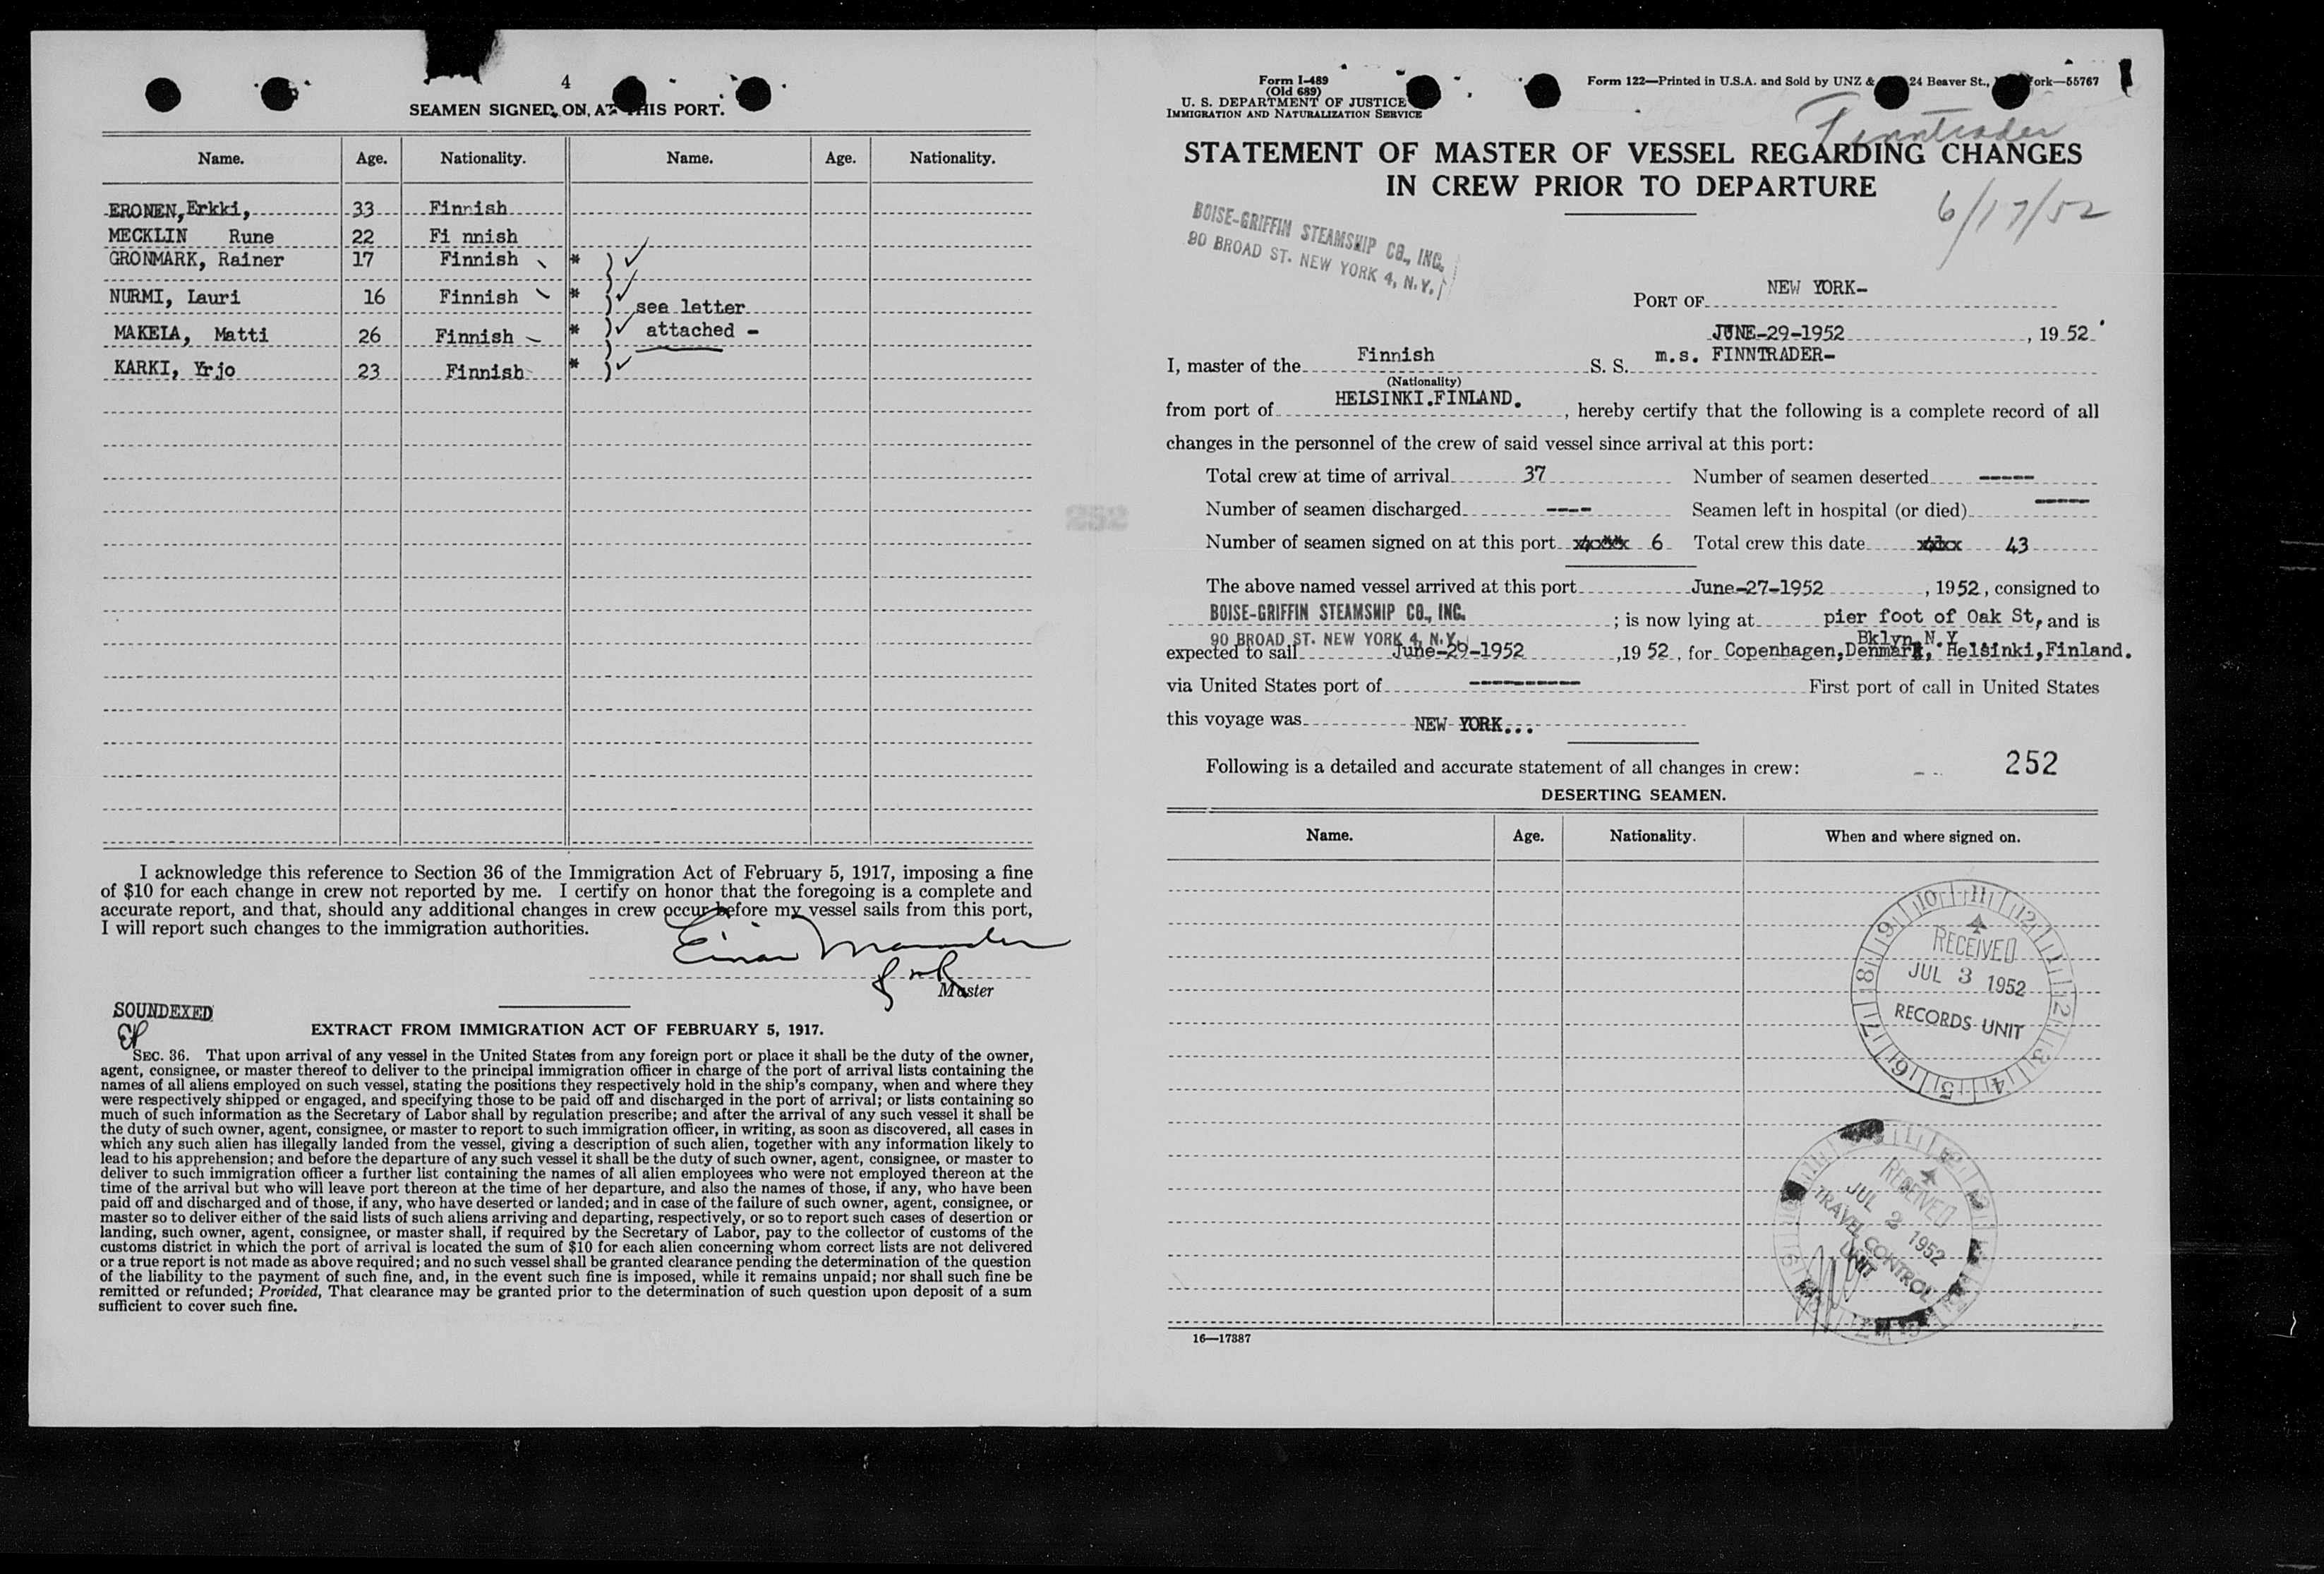 4
SEAMEN SIGNED ON AT THIS PORT.
Name. Age. Nationality. Name. Age. Nationality.
ERONEN, Erkki, 33 Finnish
MECKLIN Rune 22 Fi nnish
GRONMARK, Rainer 17 Finnish * )
NURMI, Lauri 16 Finnish * )
see letter
MAKELA, Matti 26 Finnish * ) attached -
KARKI, Yrjo 23 Finnish * )
I acknowledge this reference to Section 36 of the Immigration Act of February 5, 1917, imposing a fine
of $10 for each change in crew not reported by me. I certify on honor that the foregoing is a complete and
accurate report, and that, should any additional changes in crew occur before my vessel sails from this port,
I will report such changes to the immigration authorities.
Einar
Master
SOUNDEXED
EXTRACT FROM IMMIGRATION ACT OF FEBRUARY 5, 1917.
SEC. 36. That upon arrival of any vessel in the United States from any foreign port or place it shall be the duty of the owner,
agent, consignee, or master thereof to deliver to the principal immigration officer in charge of the port of arrival lists containing the
names of all aliens employed on such vessel, stating the positions they respectively hold in the ship's company, when and where they
were respectively shipped or engaged, and specifying those to be paid off and discharged in the port of arrival; or lists containing so
much of such information as the Secretary of Labor shall by regulation prescribe; and after the arrival of any such vessel it shall be
the duty of such owner, agent, consignee, or master to report to such immigration officer, in writing, as soon as discovered, all cases in
which any such alien has illegally landed from the vessel, giving a description of such alien, together with any information likely to
lead to his apprehension; and before the departure of any such vessel it shall be the duty of such owner, agent, consignee, or master to
deliver to such immigration officer a further list containing the names of all alien employees who were not employed thereon at the
time of the arrival but who will leave port thereon at the time of her departure, and also the names of those, if any, who have been
paid off and discharged and of those, if any, who have deserted or landed; and in case of the failure of such owner, agent, consignee, or
master so to deliver either of the said lists of such aliens arriving and departing, respectively, or so to report such cases of desertion or
landing, such owner, agent, consignee, or master shall, if required by the Secretary of Labor, pay to the collector of customs of the
customs district in which the port of arrival is located the sum of $10 for each alien concerning whom correct lists are not delivered
or a true report is not made as above required; and no such vessel shall be granted clearance pending the determination of the question
of the liability to the payment of such fine, and, in the event such fine is imposed, while it remains unpaid; nor shall such fine be
remitted or refunded; Provided, That clearance may be granted prior to the determination of such question upon deposit of a sum
sufficient to cover such fine.
Form I-489
(Old 689)
U. S. DEPARTMENT OF JUSTICE
IMMIGRATION AND NATURALIZATION SERVICE
Form 122—Printed in U.S.A. and Sold by UNZ & 24 Beaver St., ork—55767
Finntrader
STATEMENT OF MASTER OF VESSEL REGARDING CHANGES
IN CREW PRIOR TO DEPARTURE
6/17/52
BOISE-GRIFFIN STEAMSHIP CO., INC.
90 BROAD ST. NEW YORK 4, N.Y.
PORT OF NEW YORK-
JUNE-29-1952, 19 52
I, master of the Finnish S. S. m.s. FINNTRADER-
(Nationality)
from port of HELSINKI.FINLAND., hereby certify that the following is a complete record of all
changes in the personnel of the crew of said vessel since arrival at this port:
Total crew at time of arrival 37 Number of seamen deserted -----
Number of seamen discharged ---- Seamen left in hospital (or died) -----
Number of seamen signed on at this port 6 Total crew this date 43
The above named vessel arrived at this port June-27-1952, 1952, consigned to
BOISE-GRIFFIN STEAMSHIP CO., INC. ; is now lying at pier foot of Oak St, and is
90 BROAD ST. NEW YORK 4, N.Y. Bklyn.N.Y.
expected to sail June-29-1952, 19 52, for Copenhagen,Denmark, Helsinki,Finland.
via United States port of ---------- First port of call in United States
this voyage was NEW YORK...
Following is a detailed and accurate statement of all changes in crew: 252
DESERTING SEAMEN.
Name. Age. Nationality. When and where signed on.
RECEIVED
JUL 3 1952
RECORDS UNIT
RECEIVED
JUL 2 1952
TRAVEL CONTROL
UNIT
16—17387